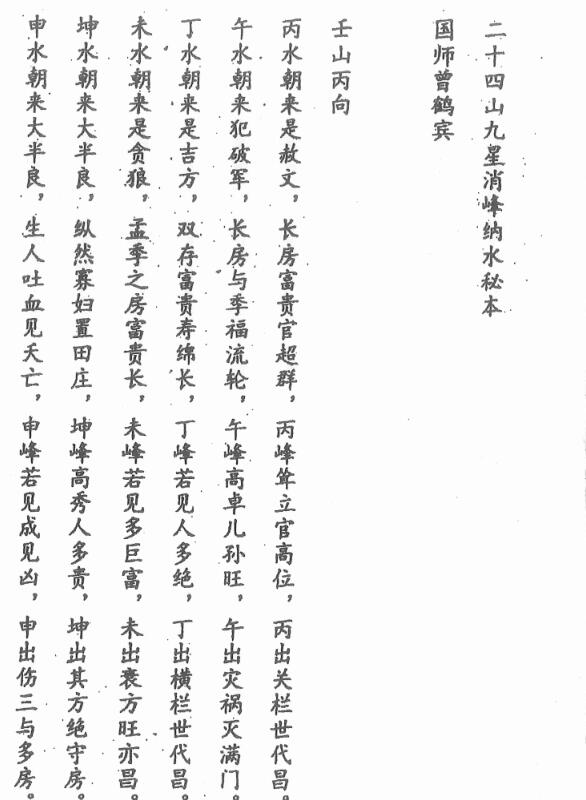 二十四山九星消峰纳水秘本
国师曾鹤宾
壬山丙向
丙水朝来是赦文，长房富贵官超群，丙峰耸立官高位，丙出关栏世代昌。
午水朝来犯破军，长房与季福流轮，午峰高卓儿孙旺，午出灾祸灭满门。
丁水朝来是吉方，双存富贵寿绵长，丁峰若见人多绝，丁出横栏世代昌。
未水朝来是贪狼，孟季之房富贵长，未峰若见多巨富，未出衰方旺亦昌。
坤水朝来大半良，纵然寡妇置田庄，坤峰高秀人多贵，坤出其方绝守房。
申水朝来大半良，生人吐血见夭亡，申峰若见成见凶，申出伤三与多房。